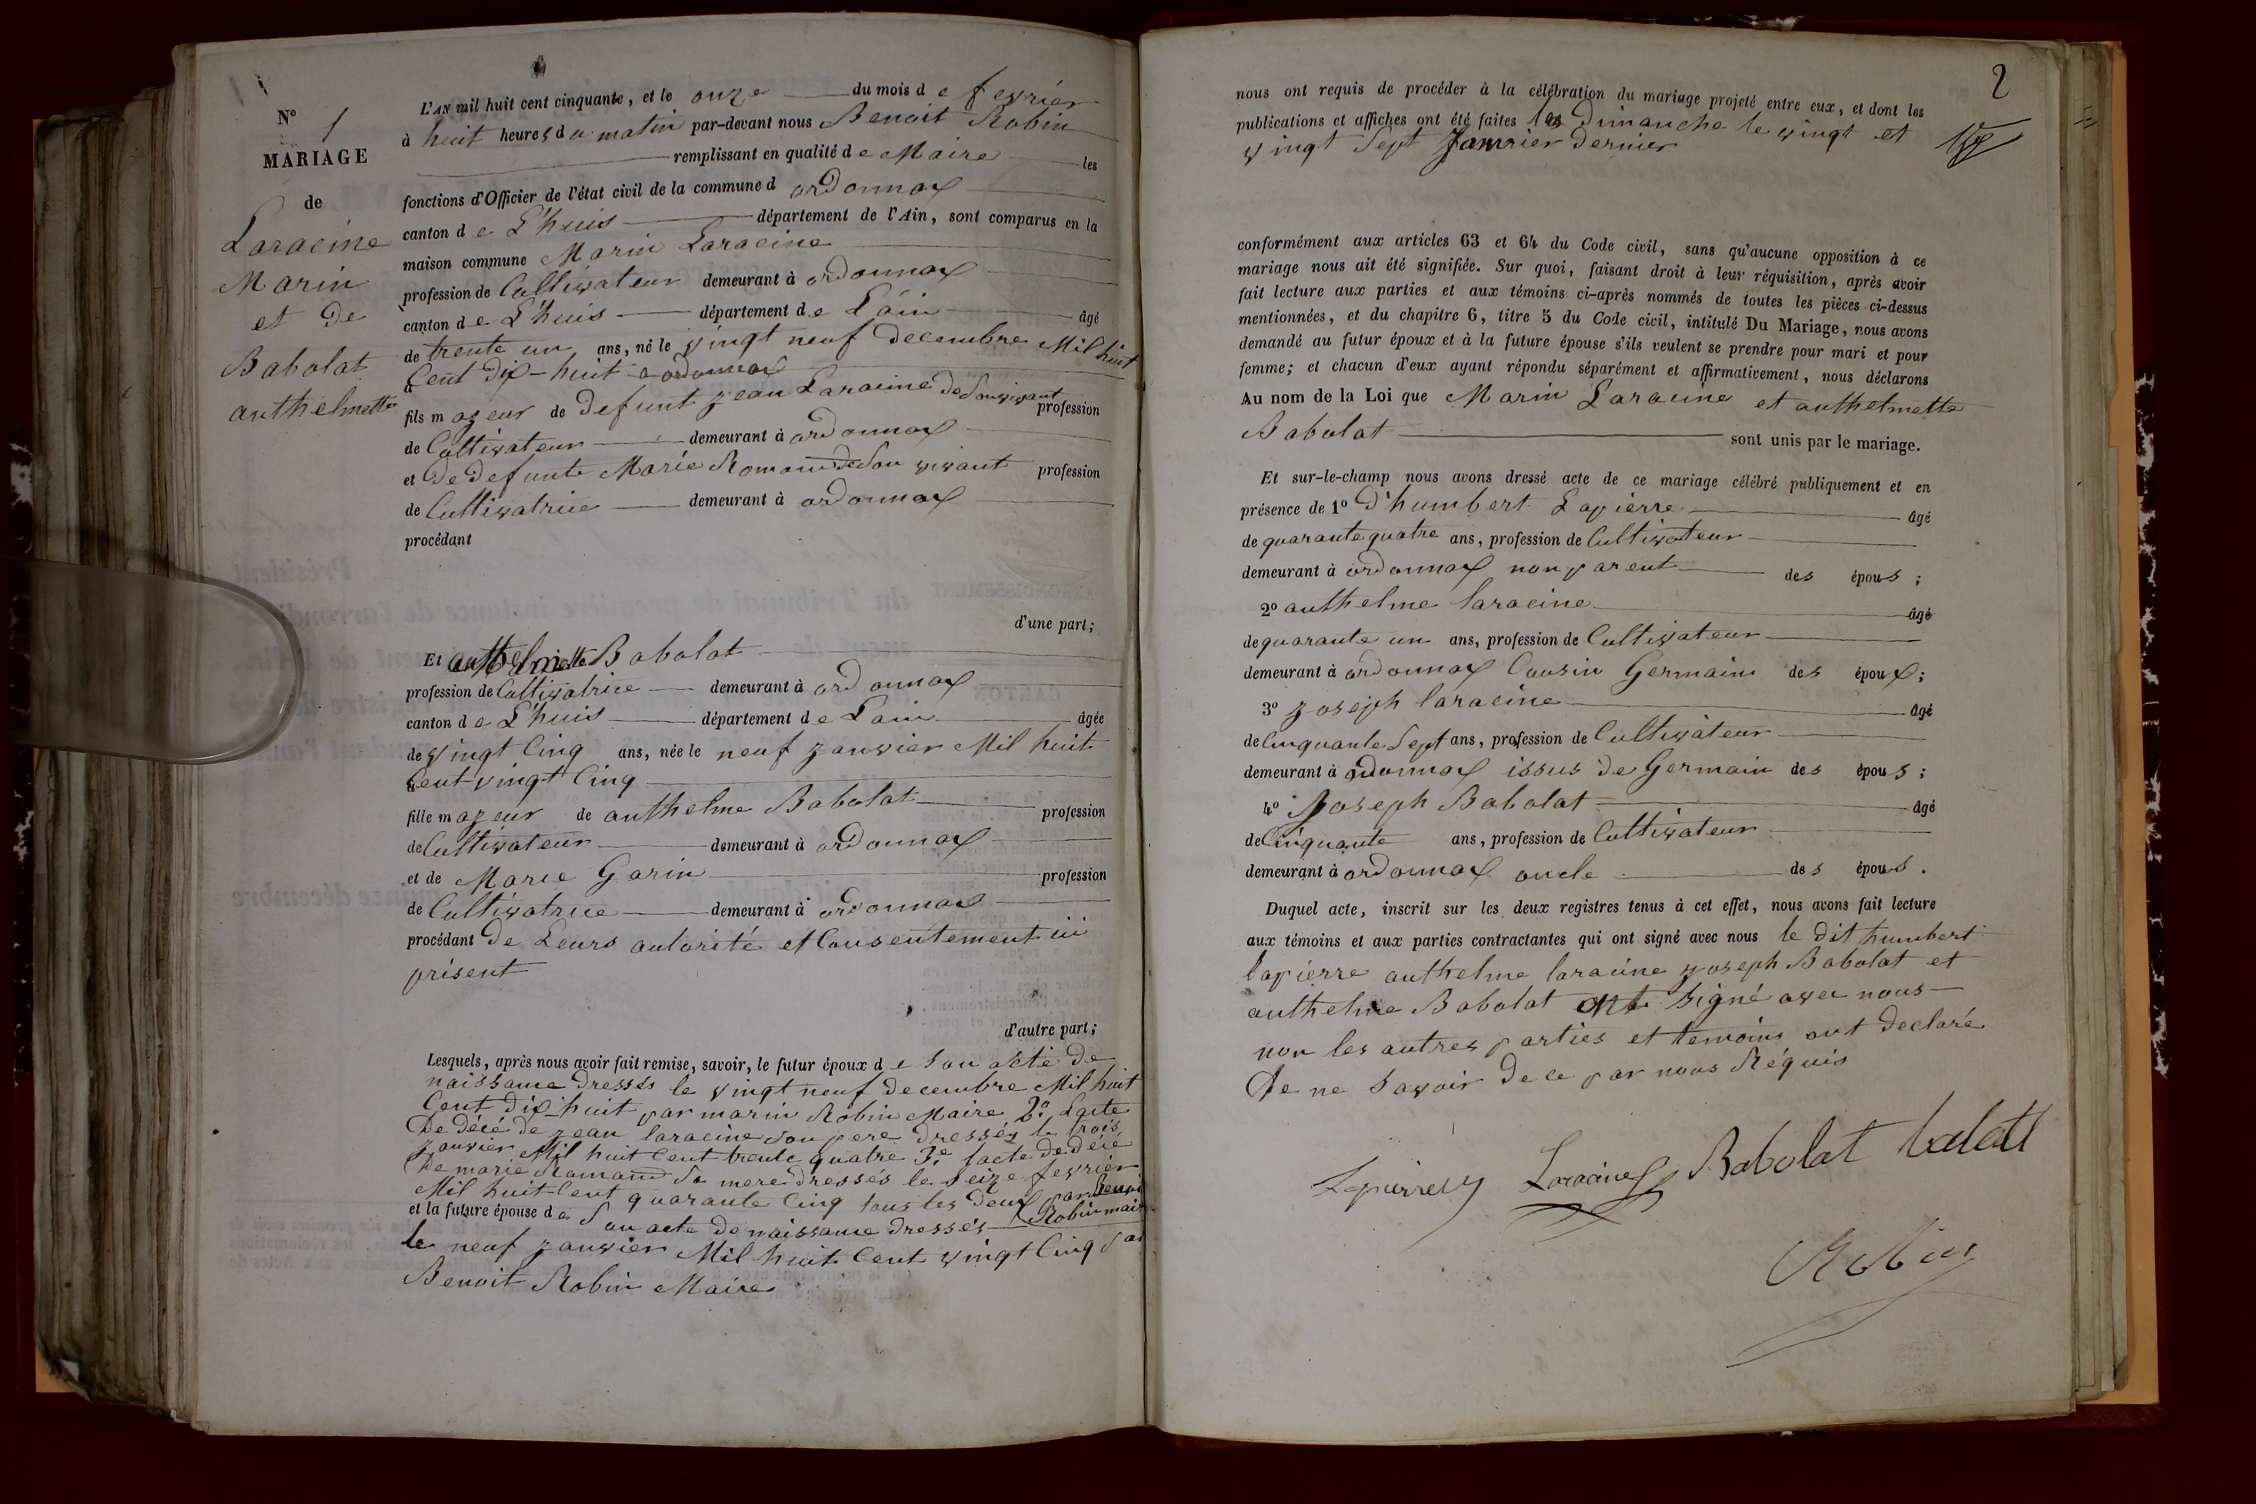 N° 1
MARIAGE
de
Laracine
Marin
et de
Babolat
anthelmette
L'AN mil huit cent cinquante, et le onze du mois de fevrier
à huit heures du matin par-devant nous Benoit Robin
remplissant en qualité de Maire les
fonctions d'Officier de l'état civil de la commune d ordonnax
canton de L'huis département de l'Ain, sont comparus en la
maison commune Marin Laracine
profession de Cultivateur demeurant à ordonnax
canton de L'huis département de L'ain âgé
de trente un ans, né le vingt neuf decembre Mil huit
Cent dix-huit a ordonnax
fils majeur de defunt jean Laracine de Son vivant profession
de Cultivateur demeurant à ordonnax
et de defunte Marie Romand de Son vivant profession
de Cultivatrice demeurant à ordonnax
procédant
d'une part;
Et anthelmette Babolat
profession de Cultivatrice demeurant à ordonnax
canton de L'huis département de Lain âgée
de vingt Cinq ans, née le neuf janvier Mil huit
Cent vingt Cinq
fille majeur de anthelme Babolat profession
de Cultivateur demeurant à ordonnax
et de Marie Garin profession
de Cultivatrice demeurant à ordonnax
procédant de Leurs autorité et Consentement ici
présent
d'autre part;
Lesquels, après nous avoir fait remise, savoir, le futur époux de Son acte de
naissance dressés le vingt neuf decembre Mil huit
Cent dix-huit par marin Robin Maire 2° Lacte
De décé de jean laracine Son pere dressés le trois
janvier Mil huit Cent trente quatre 3e lacte de décé
De marie Romand Sa mere dressés le Seize fevrier
Mil huit Cent quarante Cinq tous les deux par Benoit
Robin maire
et la future épouse de Son acte de naissance dressés
le neuf janvier Mil huit Cent vingt Cinq par
Benoit Robin Maire
2
nous ont requis de procéder à la célébration du mariage projeté entre eux, et dont les
publications et affiches ont été faites les Dimanche le vingt et
vingt Sept Janvier dernier
conformément aux articles 63 et 64 du Code civil, sans qu'aucune opposition à ce
mariage nous ait été signifiée. Sur quoi, faisant droit à leur réquisition, après avoir
fait lecture aux parties et aux témoins ci-après nommés de toutes les pièces ci-dessus
mentionnées, et du chapitre 6, titre 5 du Code civil, intitulé Du Mariage, nous avons
demandé au futur époux et à la future épouse s'ils veulent se prendre pour mari et pour
femme; et chacun d'eux ayant répondu séparément et affirmativement, nous déclarons
Au nom de la Loi que Marin Laracine et anthelmette
Babolat sont unis par le mariage.
Et sur-le-champ nous avons dressé acte de ce mariage célébré publiquement et en
présence de 1° D'humbert Lapierre âgé
de quarante quatre ans, profession de Cultivateur
demeurant à ordonnax non parent des épous;
2° anthelme laracine âgé
de quarante un ans, profession de Cultivateur
demeurant à ordonnax Cousin Germain des époux;
3° joseph laracine âgé
de Cinquante Sept ans, profession de Cultivateur
demeurant à ordonnax issus de Germain des épous;
4° Joseph Babolat âgé
de Cinquante ans, profession de Cultivateur
demeurant à ordonnax oncle des épous.
Duquel acte, inscrit sur les deux registres tenus à cet effet, nous avons fait lecture
aux témoins et aux parties contractantes qui ont signé avec nous le dit humbert
lapierre anthelme laracine joseph Babolat et
anthelme Babolat ont Signé avec nous
non les autres parties et temoins ont declaré
De ne Savoir de ce par nous Réquis
Lapierre Laracine Babolat
Robin